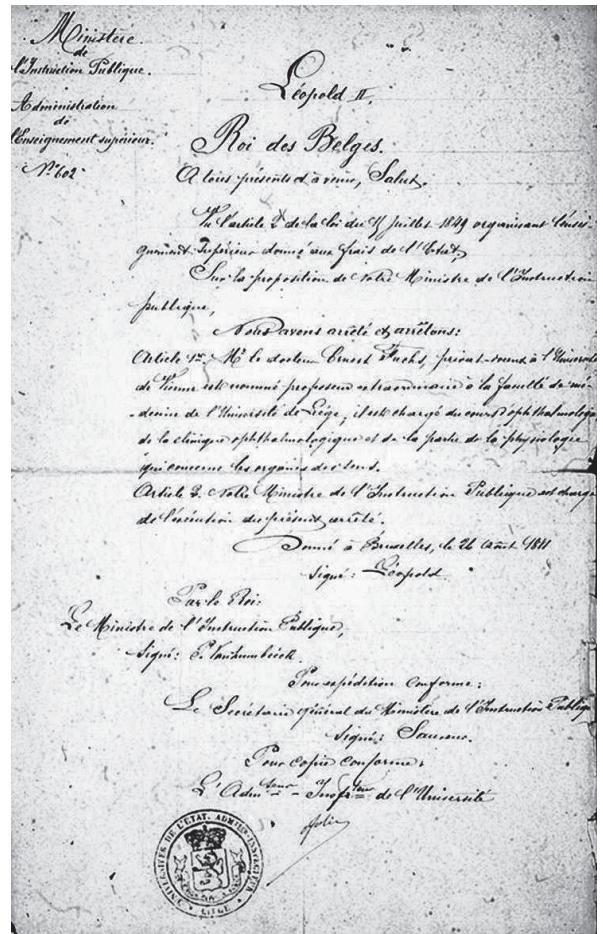 Ministère
de
l'Instruction Publique.
Administration
de
l'Enseignement supérieur.
N° 602
Léopold II,
Roi des Belges.
A tous présents et à venir, Salut.
Vu l'article 2 de la loi du 15 Juillet 1849 organisant l'ensei-
gnement supérieur donné aux frais de l'Etat,
Sur la proposition de Notre Ministre de l'Instruction
publique,
Nous avons arrêté et arrêtons:
Article 1er. Mr le docteur Ernest Fuchs, privat-docent à l'Université
de Vienne est nommé professeur extraordinaire à la faculté de mé-
-decine de l'Université de Liége, il est chargé du cours d'ophthalmologie
de la clinique ophthalmologique et de la partie de la physiologie
qui concerne les organes des sens.
Article 2. Notre Ministre de l'Instruction Publique est chargé
de l'exécution du présent arrêté.
Donné à Bruxelles, le 26 Août 1881
signé: Léopold
Par le Roi:
Le Ministre de l'Instruction Publique,
signé: P. Vanhumbéeck.
Pour expédition conforme:
Le Secrétaire général du Ministère de l'Instruction Publique
signé: Sauveur.
Pour copie conforme:
L'Admteur - Inspteur de l'Université
UNIVERSITÉS DE L'ÉTAT. ADMIN-INSPECTEUR
LIÉGE